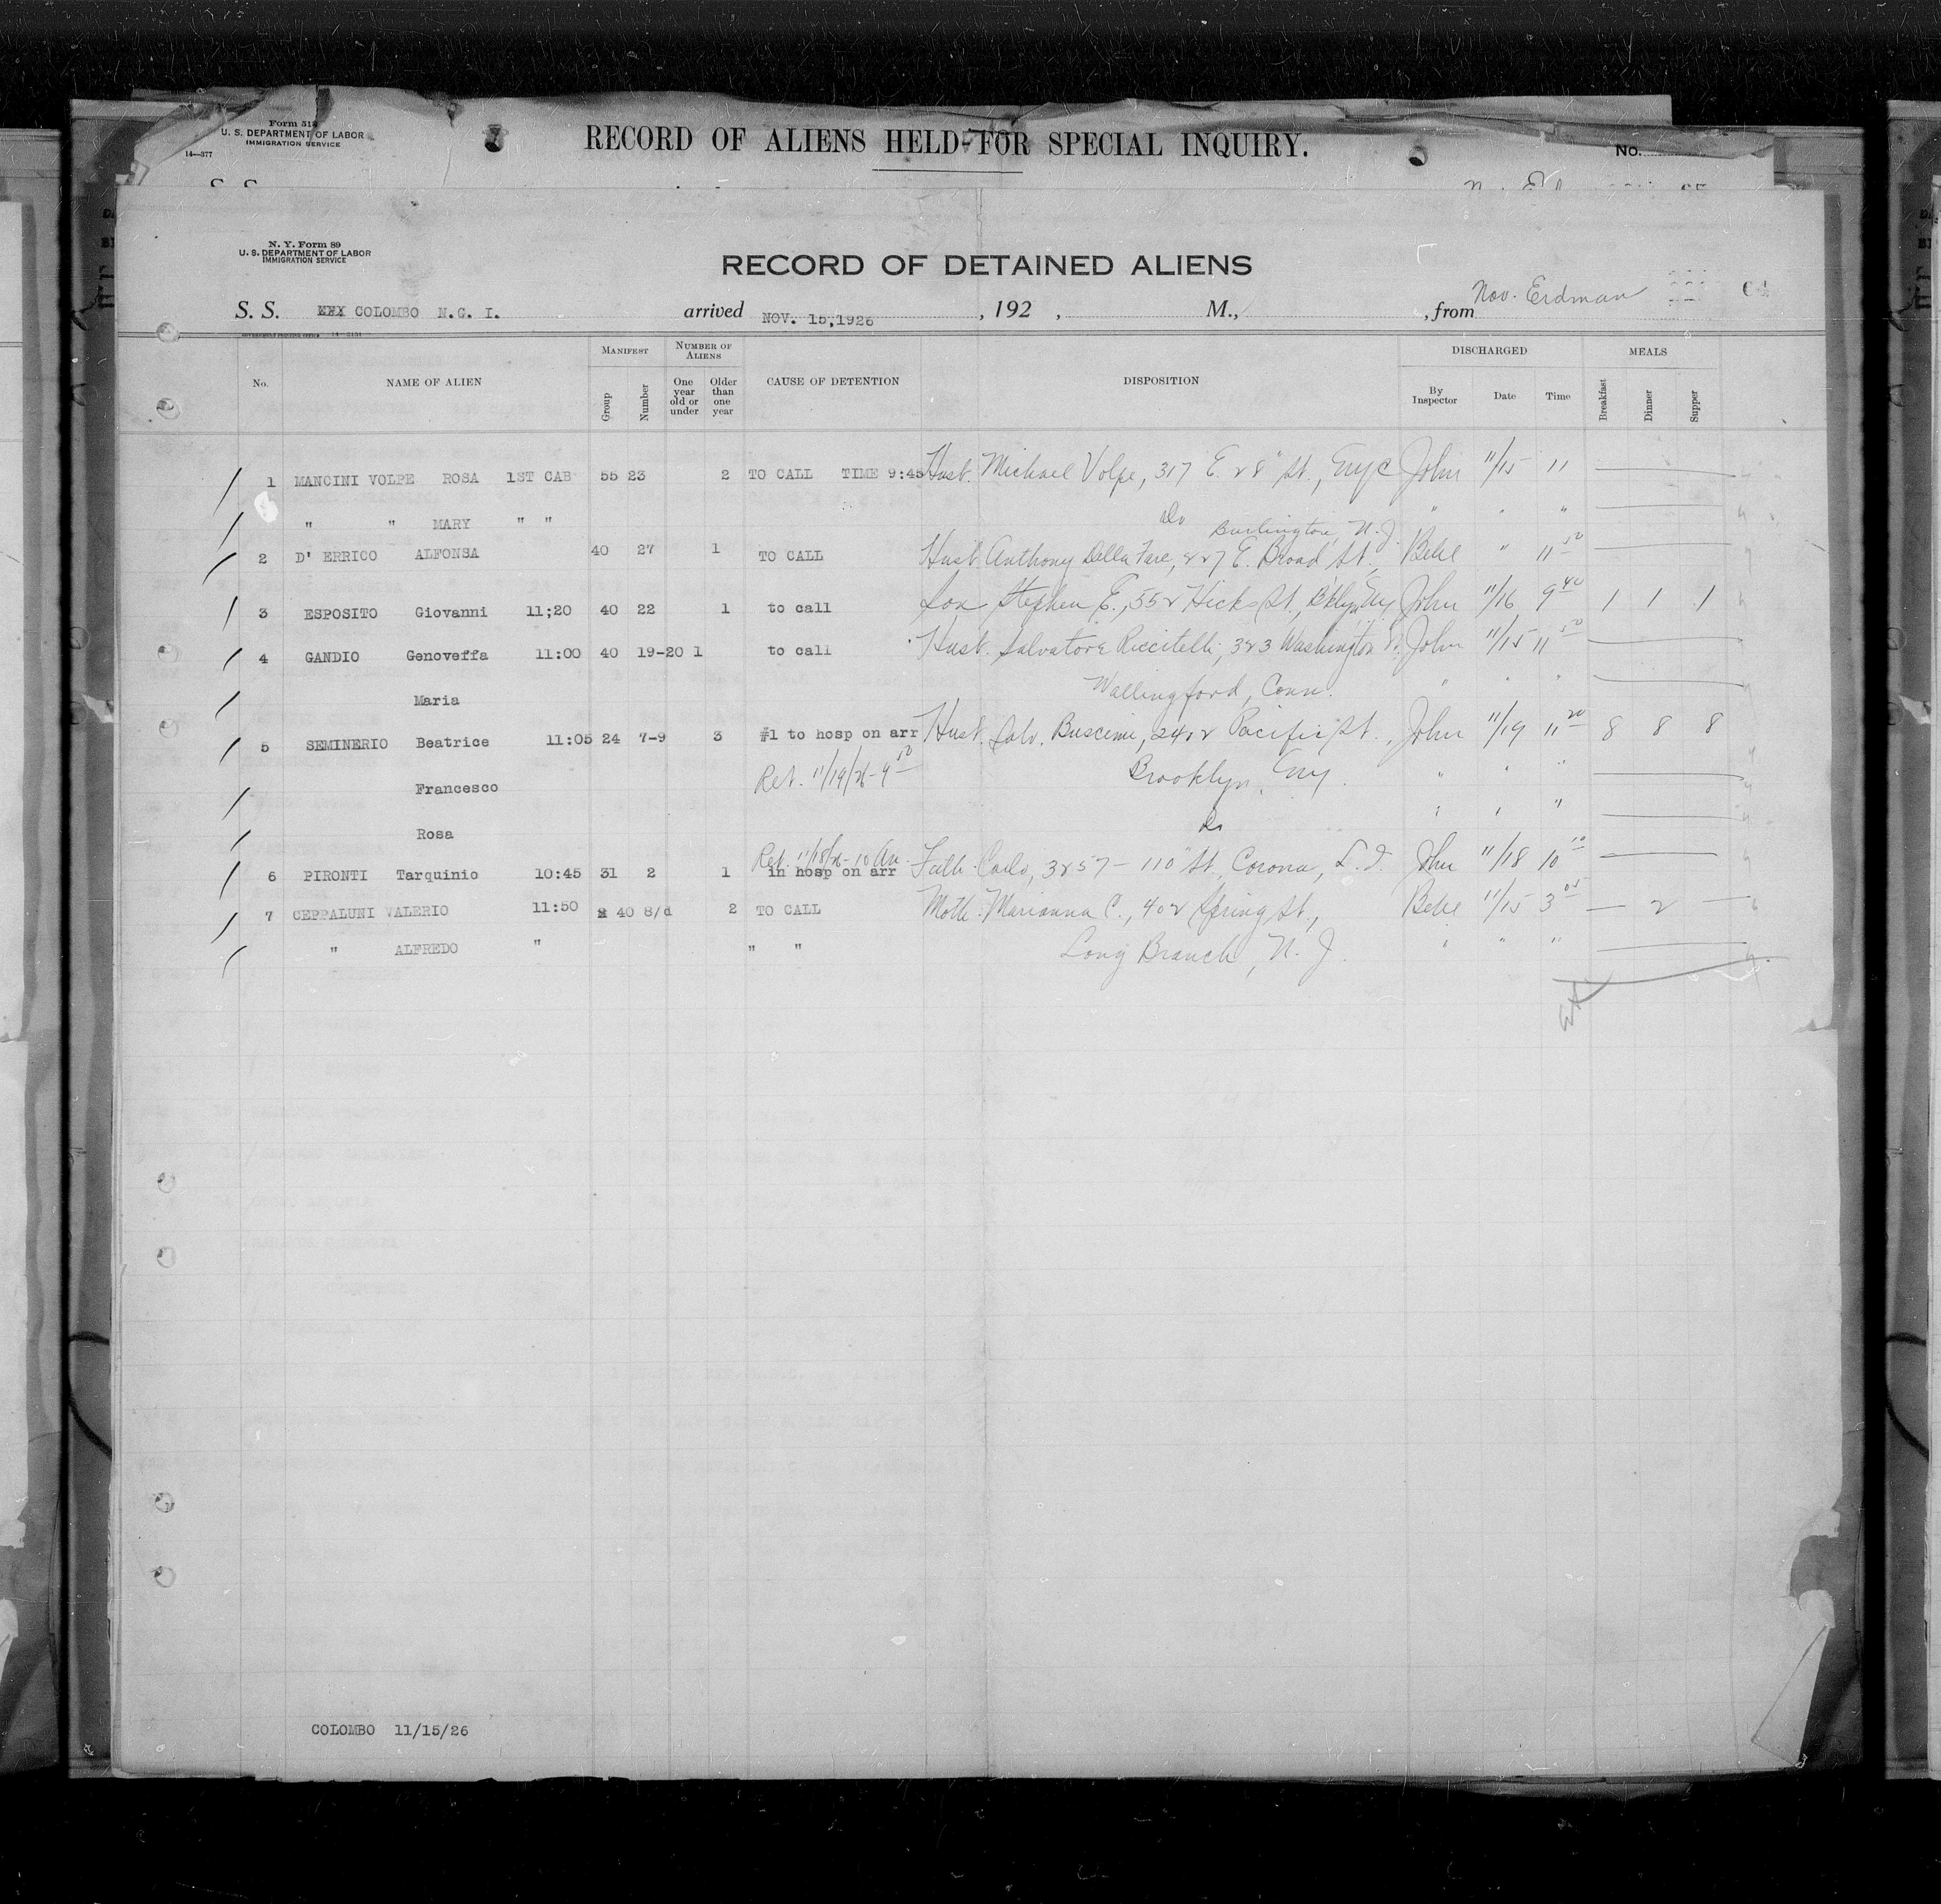 Form 514
U. S. DEPARTMENT OF LABOR
IMMIGRATION SERVICE
14—377
RECORD OF ALIENS HELD FOR SPECIAL INQUIRY.
No.
N. Y. Form 89
U. S. DEPARTMENT OF LABOR
IMMIGRATION SERVICE
RECORD OF DETAINED ALIENS
S. S. COLOMBO N.G. I. arrived NOV. 15,1926 , 192 , M., , from Nov. Erdman
No. NAME OF ALIEN MANIFEST Group Number NUMBER OF ALIENS One year old or under Older than one year CAUSE OF DETENTION DISPOSITION DISCHARGED By Inspector Date Time MEALS Breakfast Dinner Supper
1 MANCINI VOLPE ROSA 1ST CAB 55 23 2 TO CALL TIME 9:45 Husb. Michael Volpe, 317 E 28" St., NYC John 11/15 11
" " MARY " " Do " " "
Burlington, N. J.
2 D' ERRICO ALFONSA 40 27 1 TO CALL Husb. Anthony Della Fare, 227 E. Broad St., " 11 50
3 ESPOSITO Giovanni 11;20 40 22 1 to call Stephen E., 552 Hicks St., Bklyn NY John 11/16 9 40 1 1 1
4 GANDIO Genoveffa 11:00 40 19-20 1 to call Husb. Salvatore Riccitelli, 323 Washington St. John 11/15 11 50
Maria Wallingford, Conn. " " "
5 SEMINERIO Beatrice 11:05 24 7-9 3 #1 to hosp on arr Husb. Salv. Buscemi, 2412 Pacific St., John 11/19 11 20 8 8 8
Francesco Ret. 11/19/26 - 9 50 Brooklyn, NY. " " "
Rosa Do " " "
Ret. 11/18/26 - 10 AM.
6 PIRONTI Tarquinio 10:45 31 2 1 in hosp on arr Fath. Carlo, 3257 - 110" St., Corona, L. I. John 11/18 10 10
7 CEPPALUNI VALERIO 11:50 40 8/d 2 TO CALL Moth. Marianna C., 402 Spring St., 11/15 3 05 — 2 —
" ALFREDO " " " Long Branch, N. J. " " "
COLOMBO 11/15/26